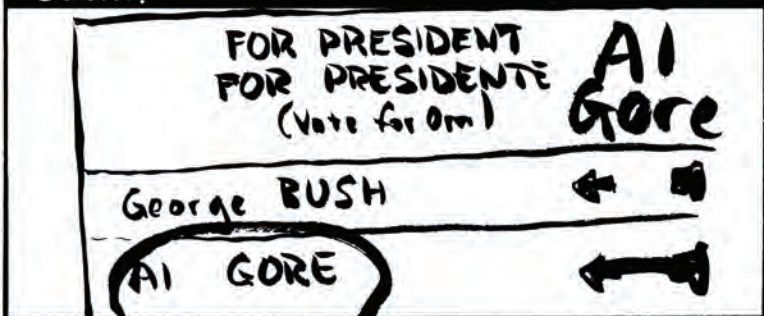 FOR PRESIDENT
FOR PRESIDENTE
(Vote for One)
Al
Gore
George BUSH
Al GORE